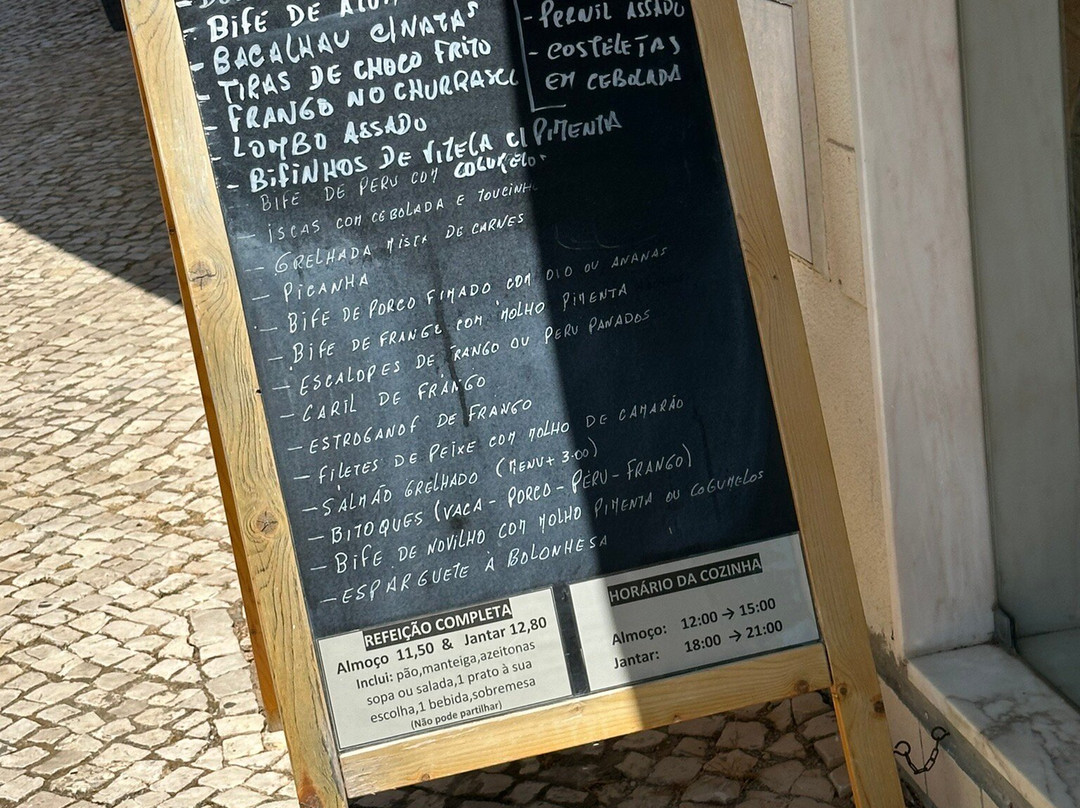 - BIFE DE ATUM
- BACALHAU C/NATAS
- TIRAS DE CHOCO FRITO
- FRANGO NO CHURRASCO
- LOMBO ASSADO
- BIFINHOS DE VITELA C/ PIMENTA
- PERNIL ASSADO
- COSTELETAS
EM CEBOLADA
BIFE DE PERU COM COGUMELOS
- ISCAS COM CEBOLADA E TOUCINHO
- GRELHADA MISTA DE CARNES
- PICANHA
- BIFE DE PORCO FUMADO COM OVO OU ANANAS
- BIFE DE FRANGO COM MOLHO PIMENTA
- ESCALOPES DE FRANGO OU PERU PANADOS
- CARIL DE FRANGO
- ESTROGANOF DE FRANGO
- FILETES DE PEIXE COM MOLHO DE CAMARÃO
- SALMÃO GRELHADO (MENU + 3.00)
- BITOQUES (VACA - PORCO - PERU - FRANGO)
- BIFE DE NOVILHO COM MOLHO PIMENTA OU COGUMELOS
- ESPARGUETE À BOLONHESA
REFEIÇÃO COMPLETA
Almoço 11,50 & Jantar 12,80
Inclui: pão,manteiga,azeitonas
sopa ou salada,1 prato à sua
escolha,1 bebida,sobremesa
(Não pode partilhar)
HORÁRIO DA COZINHA
Almoço: 12:00 → 15:00
Jantar: 18:00 → 21:00